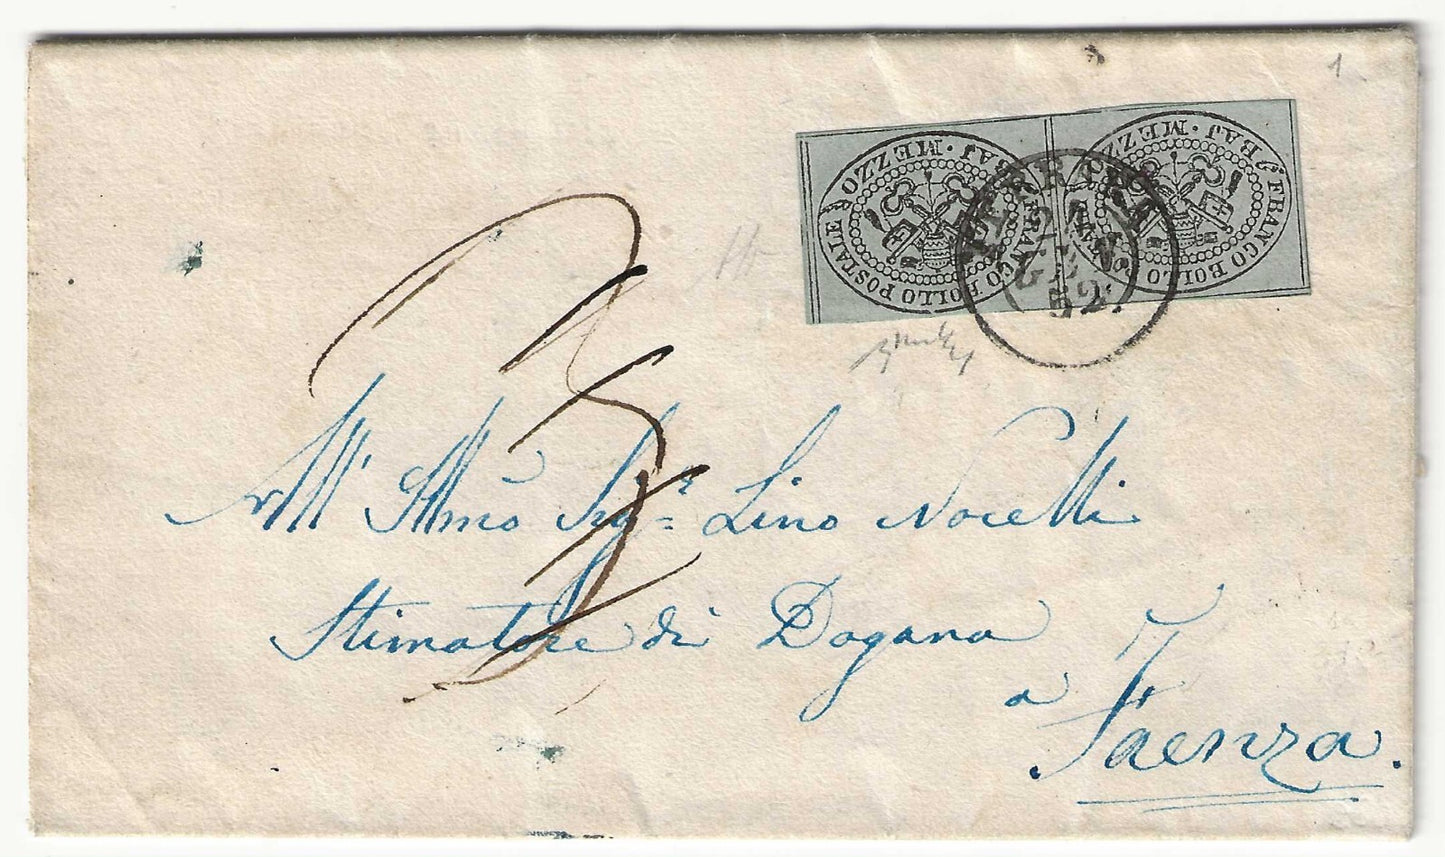 1
FRANCO BOLLO POSTALE
BAJ · MEZZO
FRANCO BOLLO
BAJ · MEZZO
24
GEN
52
3
All' Illmo Sig.r Lino Novelli
Stimatore di Dogana
a
Faenza.